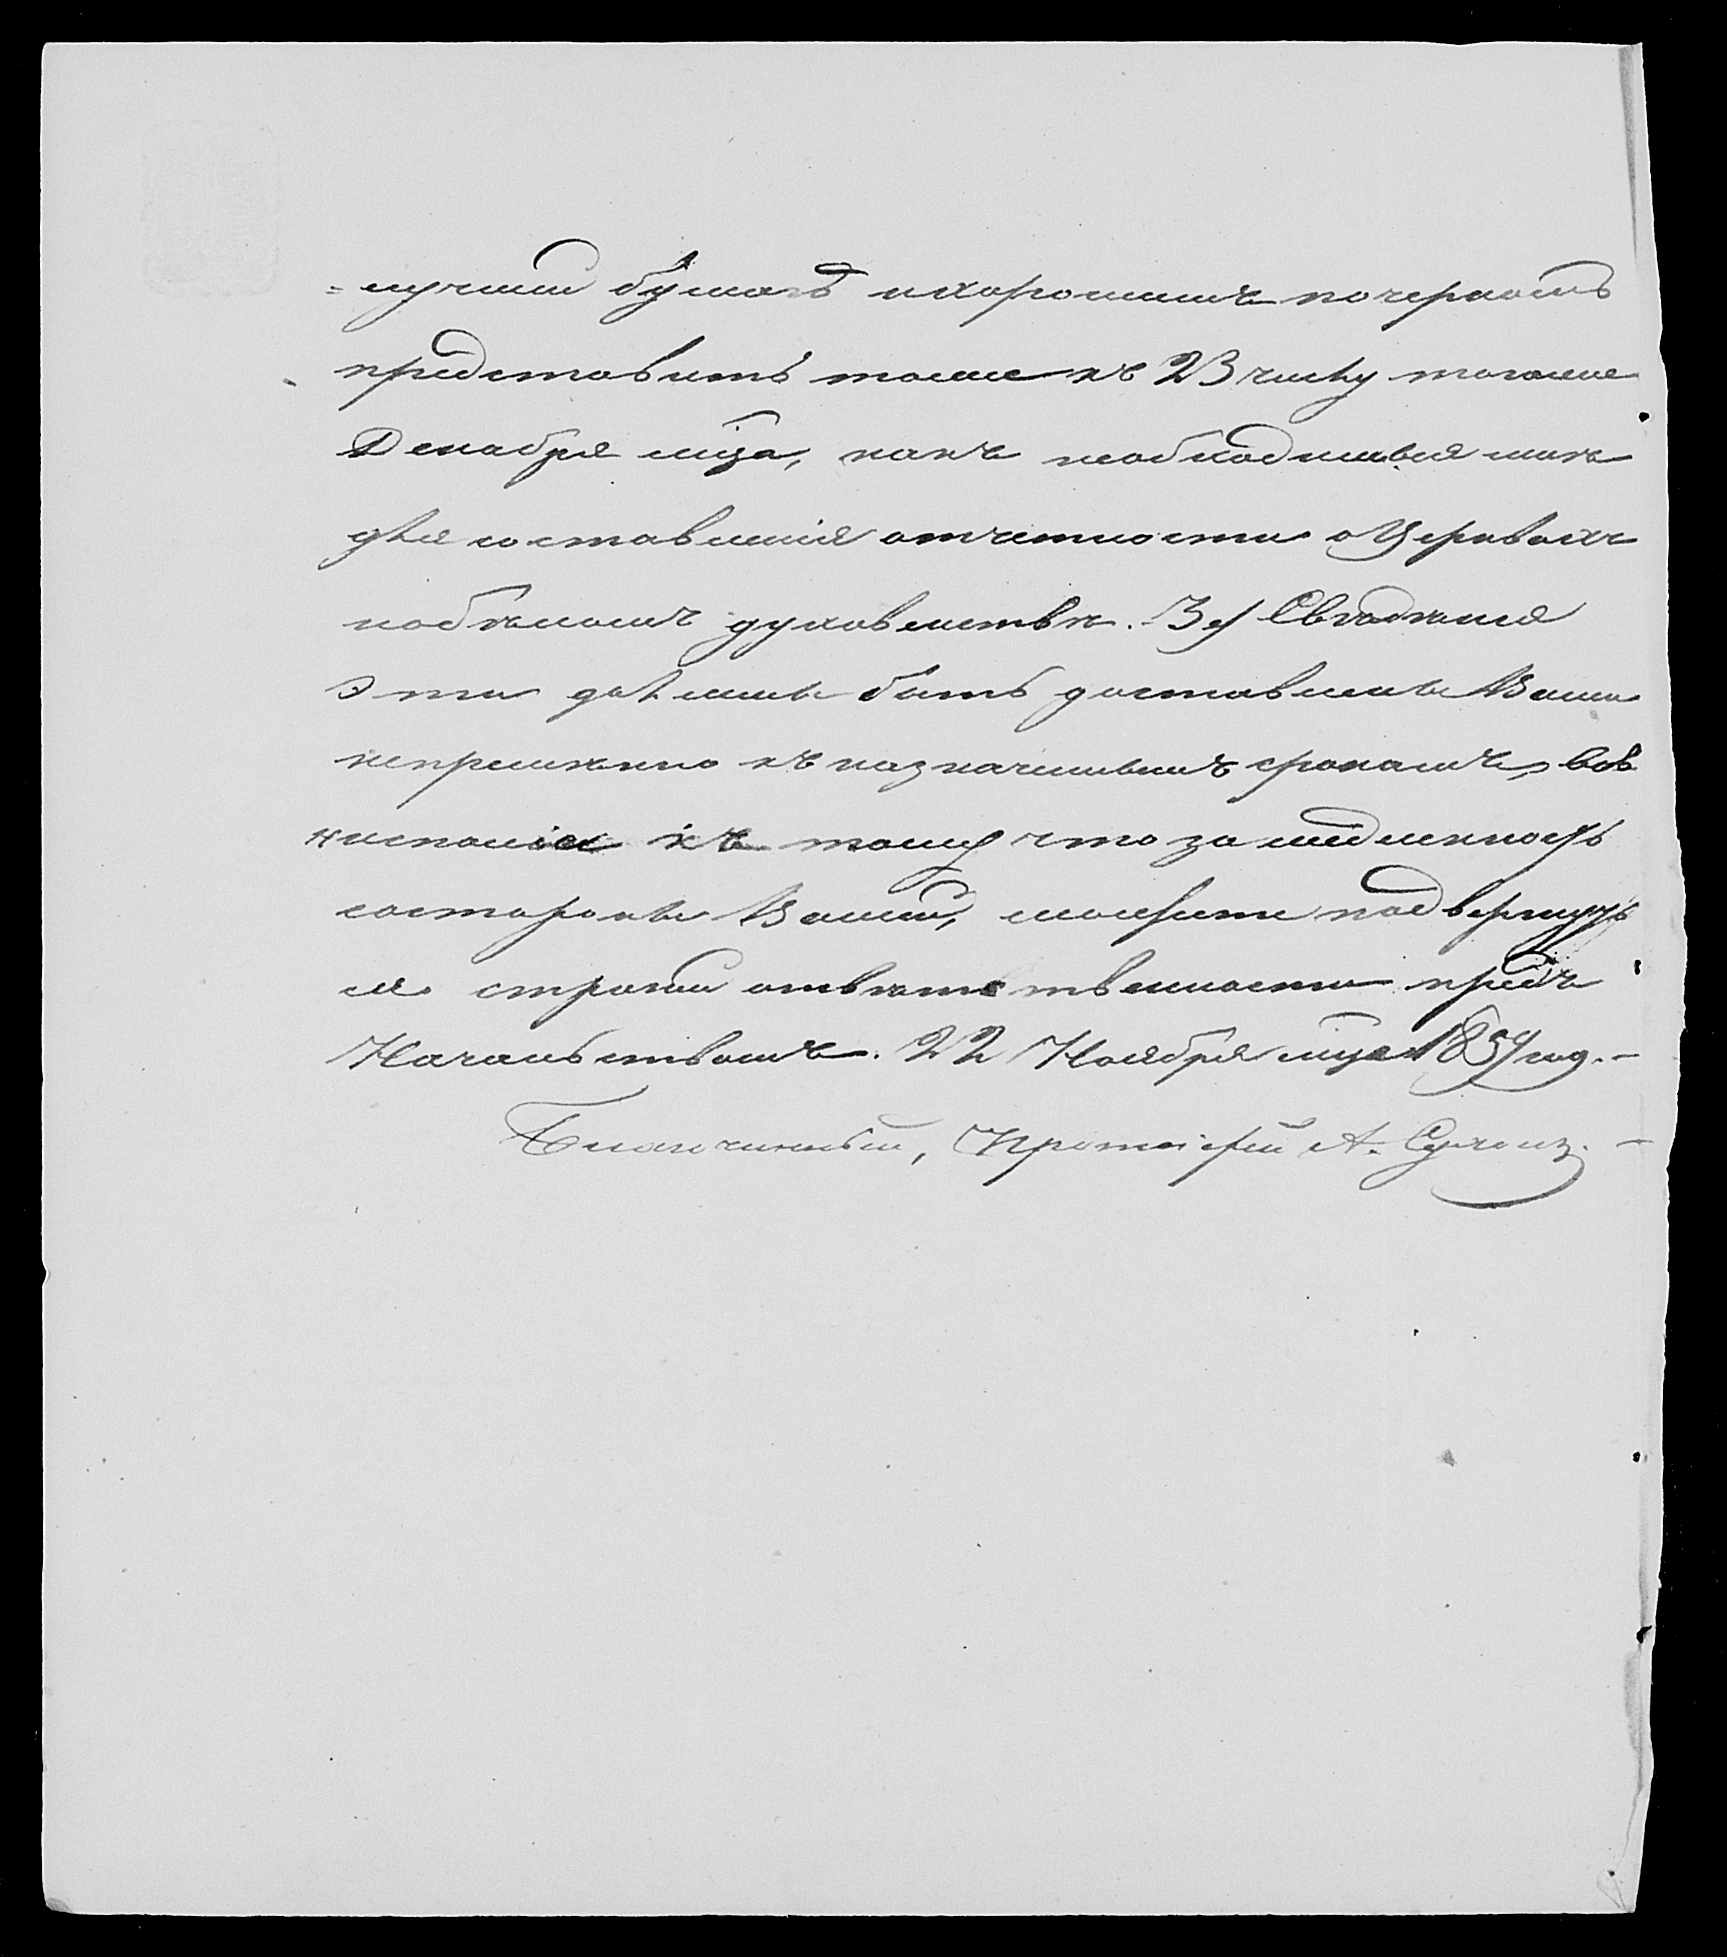 лучшей бумагѣ и хорошимъ почеркомъ
представить также къ 23 числу тогоже
Декабря мца, какъ необходимыя мнѣ
для составленія отчетности о Церквахъ
подвѣдомыхъ духовенствѣ. 3е/ Свѣдѣнія
эти должны быть доставлены Вами
непремѣнно къ назначеннымъ срокамъ,
къ тому что за медленность
состороны Вашей, можете подвергнуть
ся строгой отвѣтственности предъ
Начальствомъ. 22 Ноября мца 1859 год.-
Благочинный, Протоіерей А.